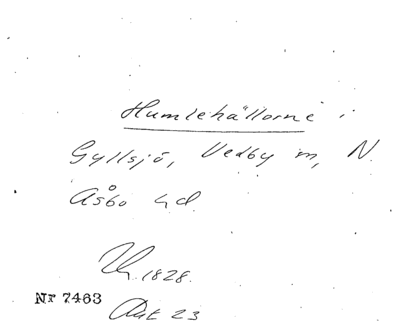 Humlehällorne i
Gyllsjö, Vedby m, N.
Åsbo hd.
1828.
Nr 7463
Akt 23